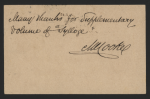 Many thanks for Supplementary
Volume of "Sylloge"
M C Cooke